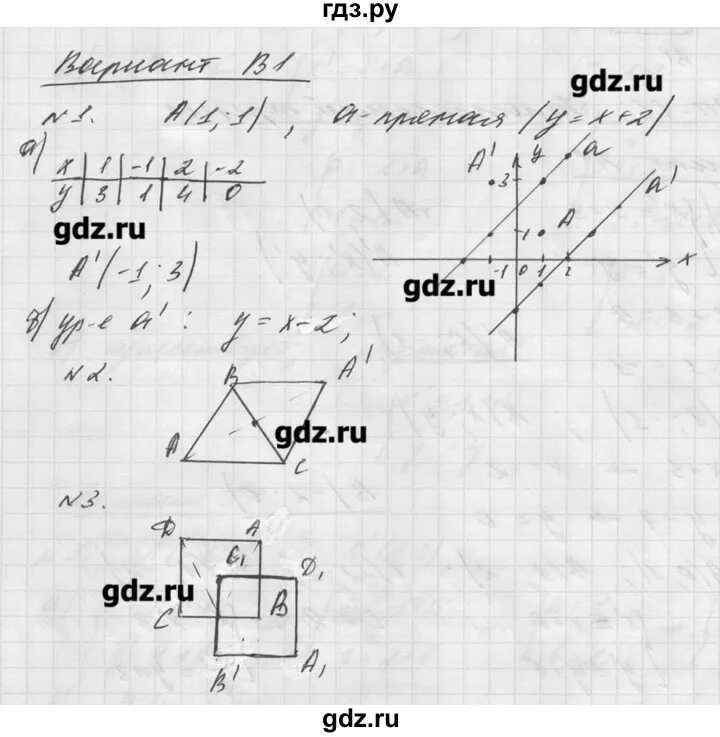 гдз.ру
Вариант В1
gdz.ru
№1. А(1; 1), а-прямая (y = x+2)
а)
x | 1 | -1 | 2 | -2
y | 3 | 1 | 4 | 0
A' 3 y a
a'
1 A
-1 0 1 2 x
gdz.ru
gdz.ru
A'(-1; 3)
б) ур-е а': y = x-2;
№2.
B A'
gdz.ru
A C
№3.
D A
C₁ D₁
gdz.ru
C B
B' A₁
gdz.ru